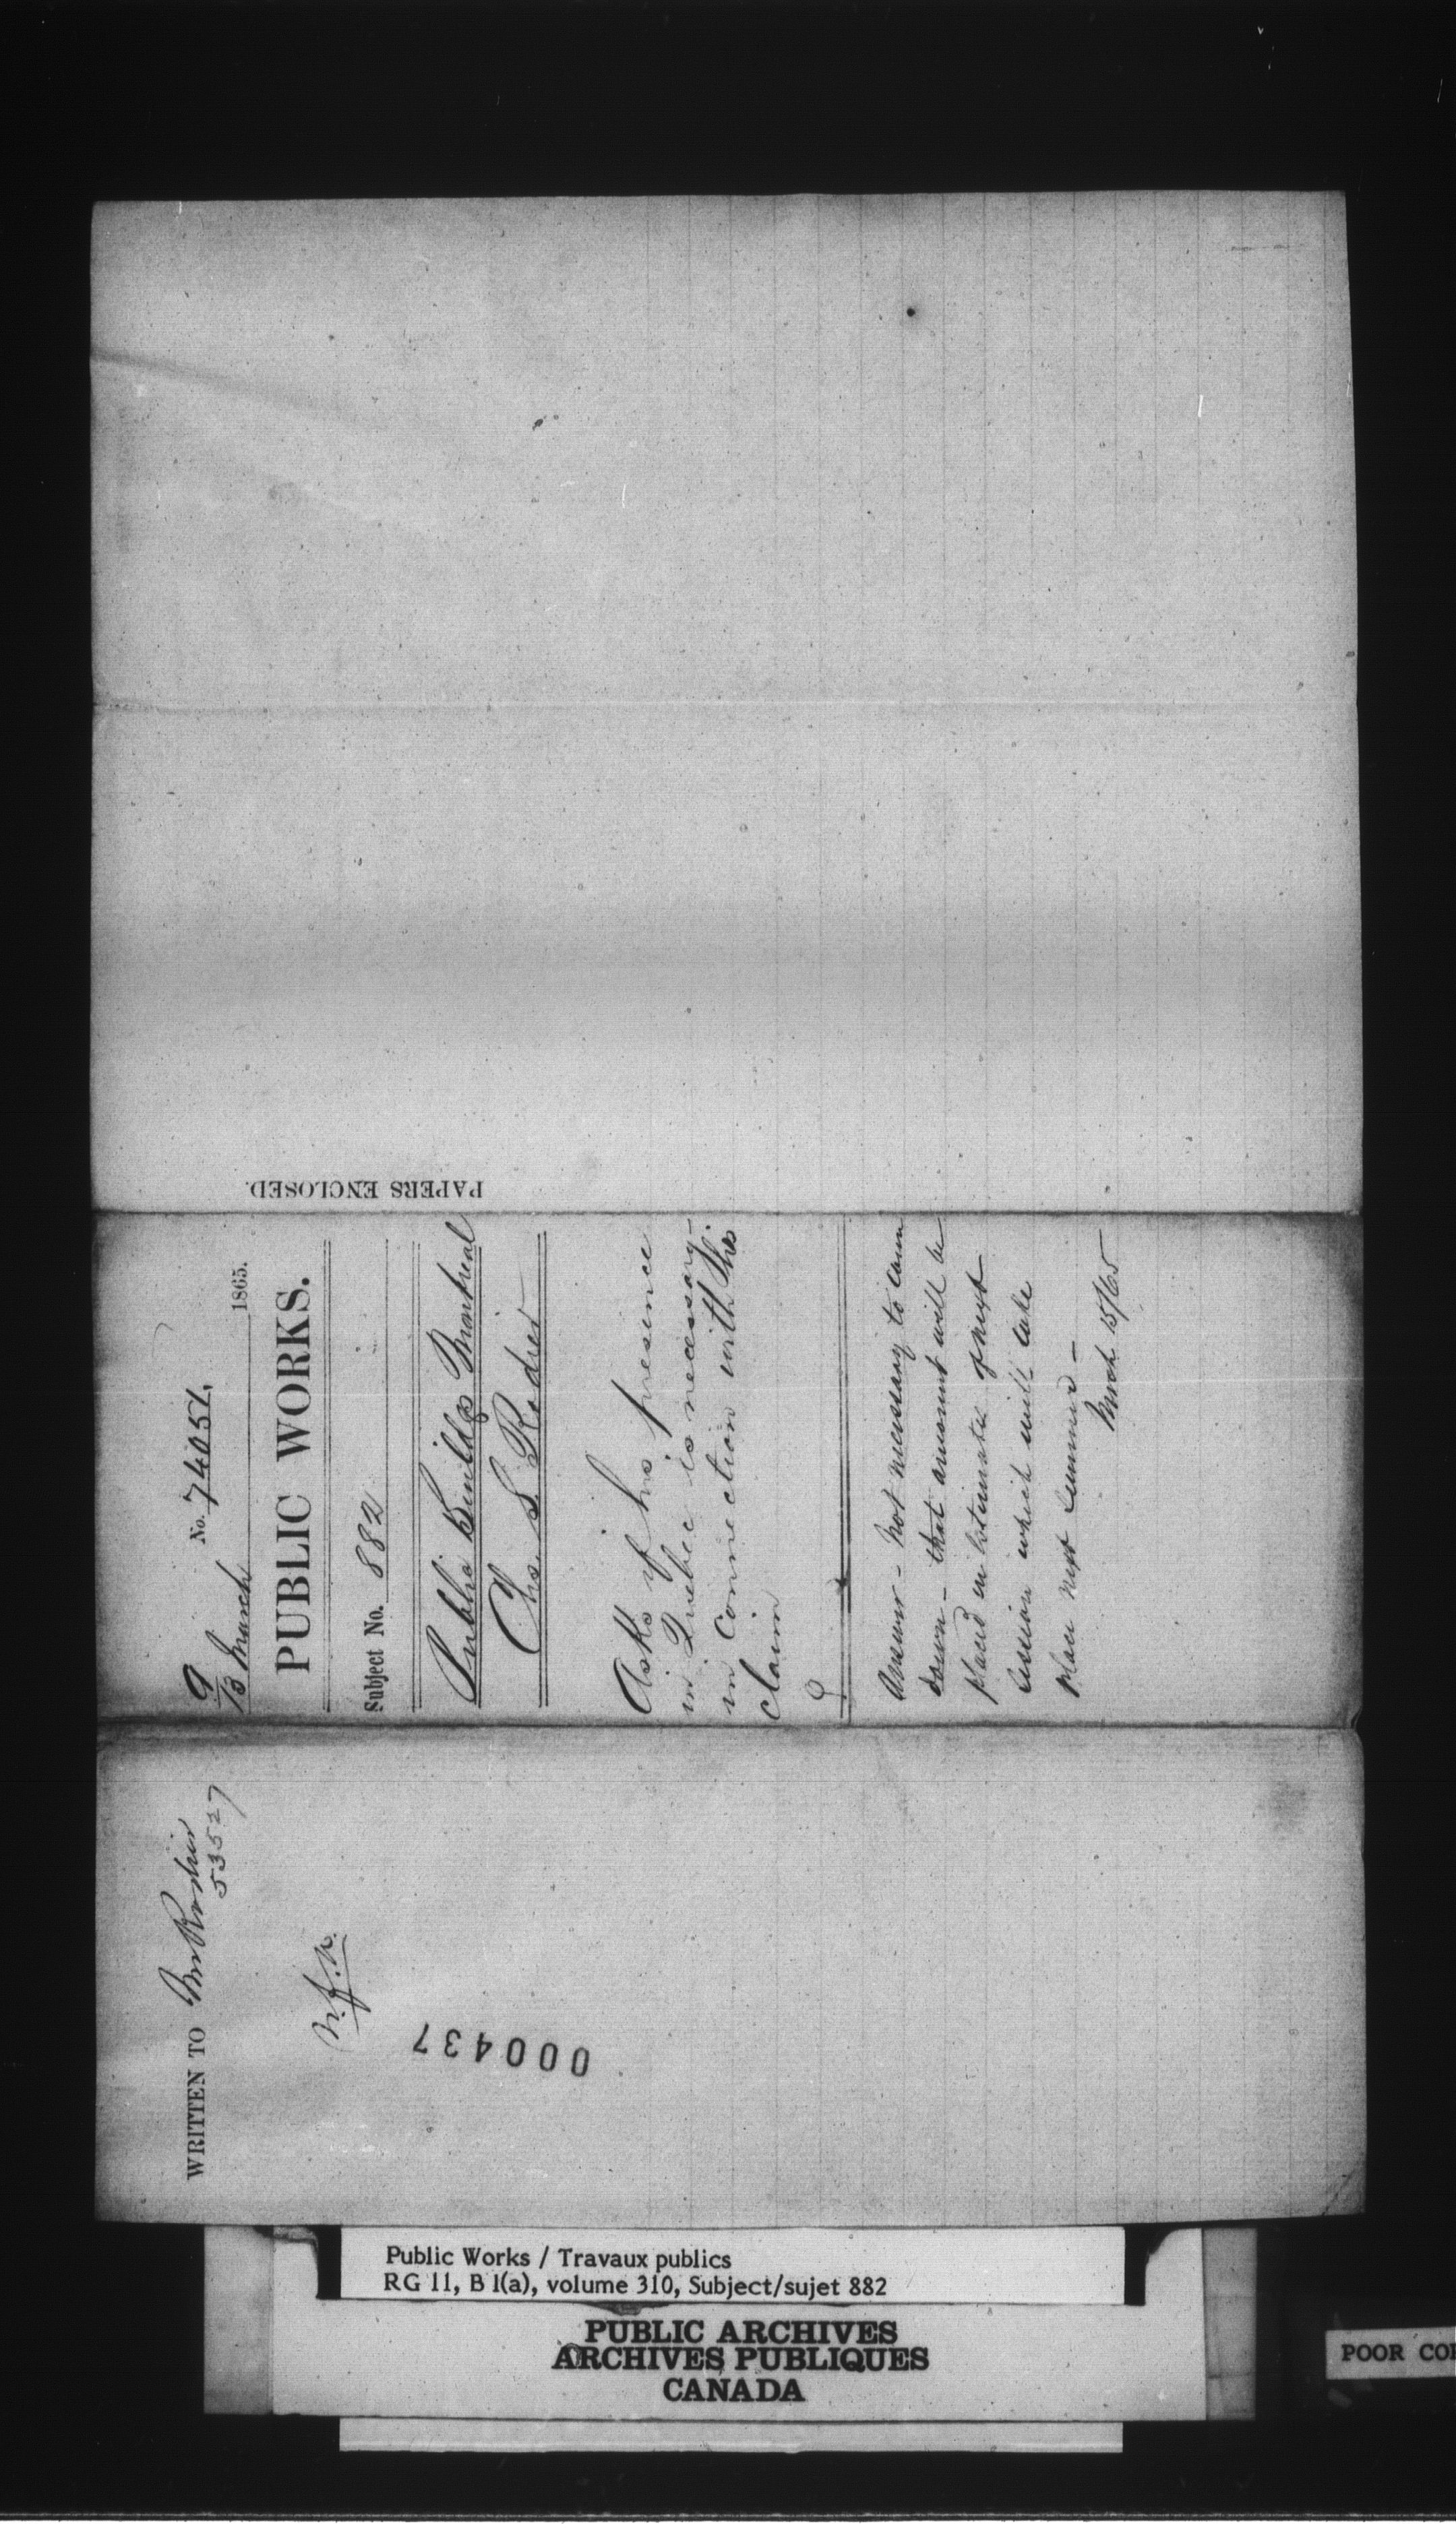 No. 74051.
9/13 March 1865.
PUBLIC WORKS.
Subject No. 882
Public Buildgs Montreal
Chs. S. Rodier
Asks if his presence
in Quebec is necessary
in connection with his
claim
Answer - Not necessary to come
down - that amount will be
placed in Estimates of next
Session which will take
place next Summer -
March 15/65
PAPERS ENCLOSED.
WRITTEN TO Mr Rodier
53527
000437
Public Works / Travaux publics
RG 11, B 1(a), volume 310, Subject/sujet 882
PUBLIC ARCHIVES
ARCHIVES PUBLIQUES
CANADA
POOR COP